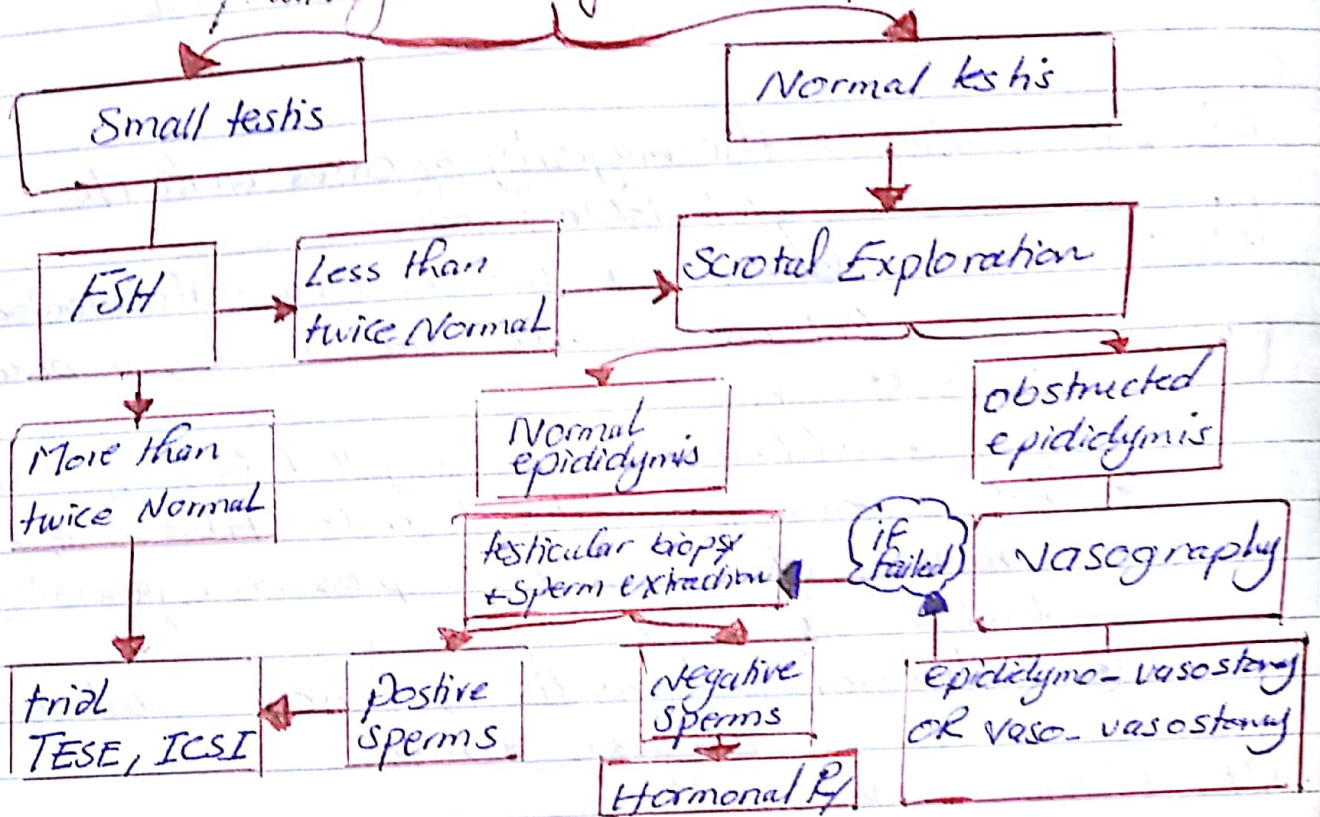 Small testis
Normal testis
FSH
Less than
twice Normal
Scrotal Exploration
More than
twice Normal
Normal
epididymis
obstructed
epididymis
testicular biopsy
+ sperm extraction
if
failed
vasography
trial
TESE, ICSI
postive
sperms
Negative
sperms
epididymo_ vasostomy
OR vaso_ vasostomy
Hormonal